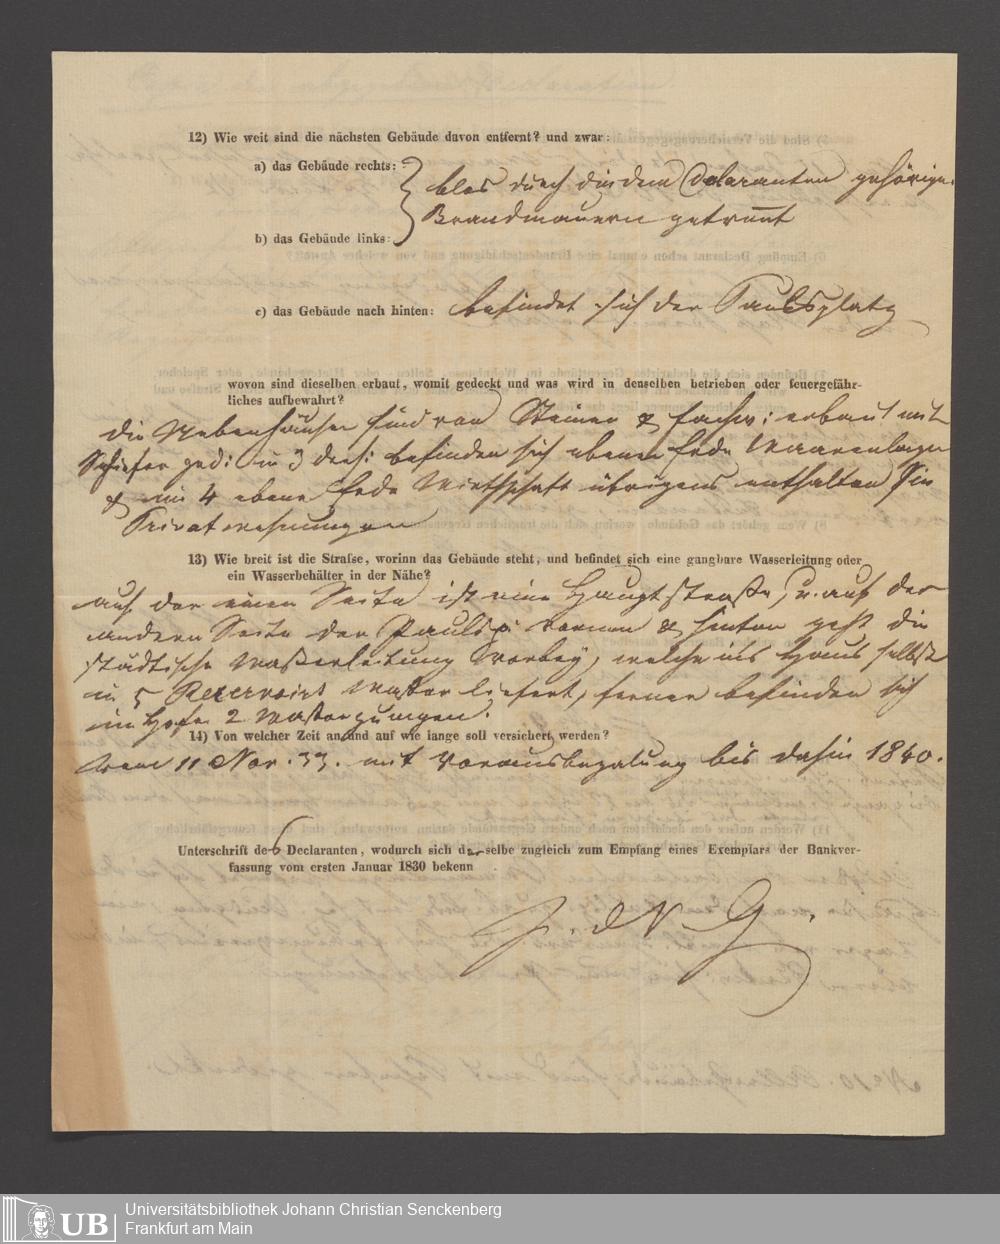 12) Wie weit sind die nächsten Gebäude davon entfernt? und zwar:
a) das Gebäude rechts:
blos durch die dem Declaranten gehörigen
Brandmauern getrennt
b) das Gebäude links:
c) das Gebäude nach hinten: befindet sich der Paulsplatz
wovon sind dieselben erbaut, womit gedeckt und was wird in denselben betrieben oder feuergefähr-
liches aufbewahrt?
die Nebenhäuser sind von Steinen & Fachw: erbaut mit
Schiefer ged: in 3 befinden sich ebener Erde Waarenlager
& in 4 ebener Erde Wirthschaft übrigens enthalten sie
Privatwohnungen
13) Wie breit ist die Strafse, worinn das Gebäude steht, und befindet sich eine gangbare Wasserleitung oder
ein Wasserbehälter in der Nähe?
auf der einen Seite ist eine Hauptstraße, u. auf der
andern Seite der Paulspl. vornen & hinten geht die
städtische Waßerleitung vorbey, welche ins Haus selbst
in 5 Reservoirs Waßer liefert, ferner befinden sich
im Hofe 2 Waßerpumpen.
14) Von welcher Zeit an und auf wie lange soll versichert werden?
vom 11 Nov. 33. mit Vorausbezalung bis dahin 1840.
Unterschrift des Declaranten, wodurch sich derselbe zugleich zum Empfang eines Exemplars der Bankver-
fassung vom ersten Januar 1830 bekenn
UB
Universitätsbibliothek Johann Christian Senckenberg
Frankfurt am Main